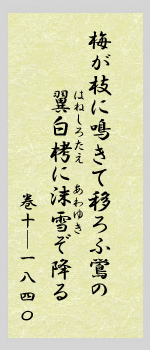 梅が枝に鳴きて移ろふ鶯の
翼白栲に沫雪ぞ降る
はねしろたえ
あわゆき
巻十―一八四〇